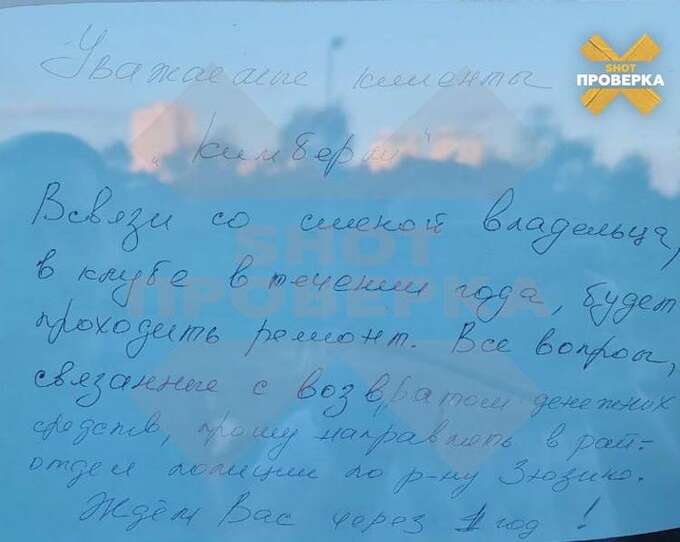 SHOT
ПРОВЕРКА
Уважаемые клиенты
"Кимберли"
Всвязи со сменой владельца,
в клубе в течении года, будет
проходить ремонт. Все вопросы,
связанные с возвратом денежных
средств, прошу направлять в рай-
отдел полиции по р-ну Зюзино.
Ждём Вас через 1 год!
SHOT
ПРОВЕРКА